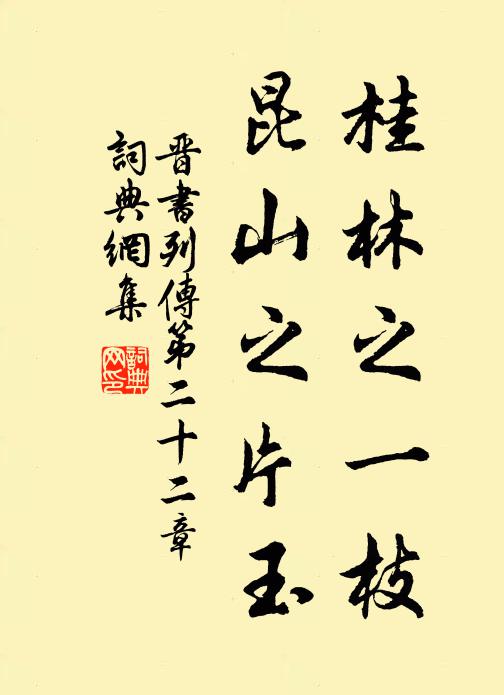 桂林之一枝
昆山之片玉
晉書列傳第二十二章
詞典網集
詞典
网印